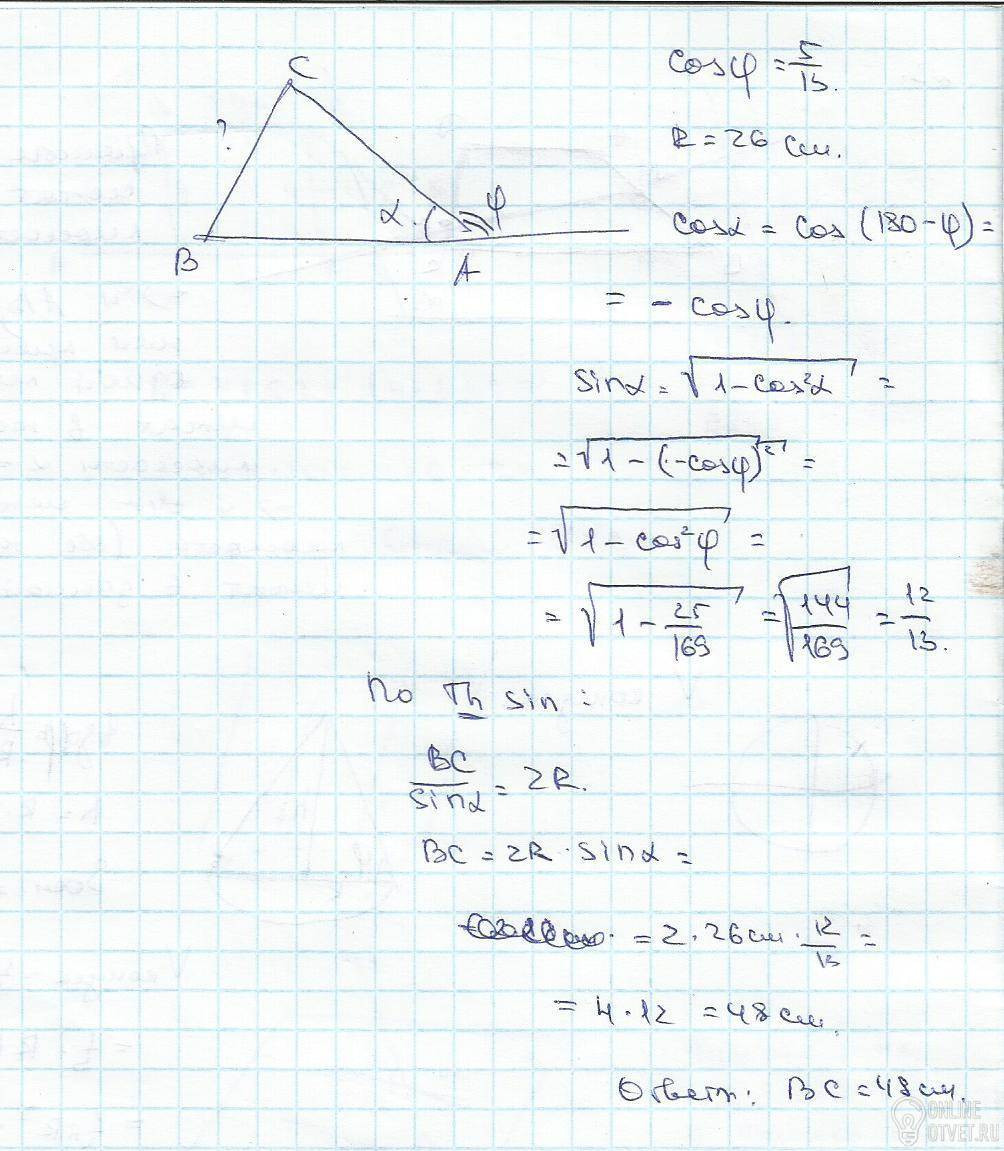 C
?
α
φ
B
A
cosφ = 5/13.
R = 26 см.
cosα = cos (180 - φ) =
= - cosφ.
sinα = √(1 - cos²α) =
= √(1 - (-cosφ)²) =
= √(1 - cos²φ) =
= √(1 - 25/169) = √(144/169) = 12/13.
По Th sin :
BC/sinα = 2R.
BC = 2R · sinα =
= 2 · 26 см · 12/13 =
= 4 · 12 = 48 см.
Ответ: BC = 48 см.
ONLINE
OTVET.RU